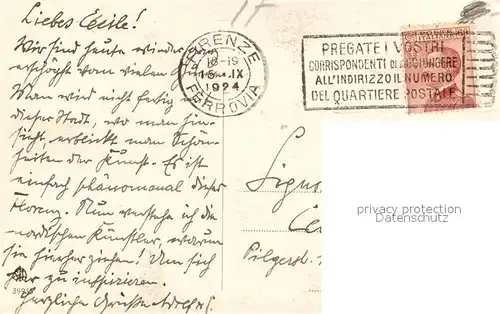 Liebes Cesile!
Wir sind heute wieder ganz
erschöpft vom vielen
Man wird nicht fertig
dieser Stadt, wo man hin-
sieht, erblickt man Schön-
heiten der Kunst. Es ist
einfach phänomenal dieses
Florenz. Nun verstehe ich die
nordischen Künstler, warum
sie hierher ziehen! Um sich
hier zu inspirieren.
Herzliche Grüße
FIRENZE
18-19
15 IX
1924
FERROVIA
PREGATE I VOSTRI
CORRISPONDENTI DI AGGIUNGERE
ALL'INDIRIZZO IL NUMERO
DEL QUARTIERE POSTALE
Signo
Ce
privacy protection
Datenschutz